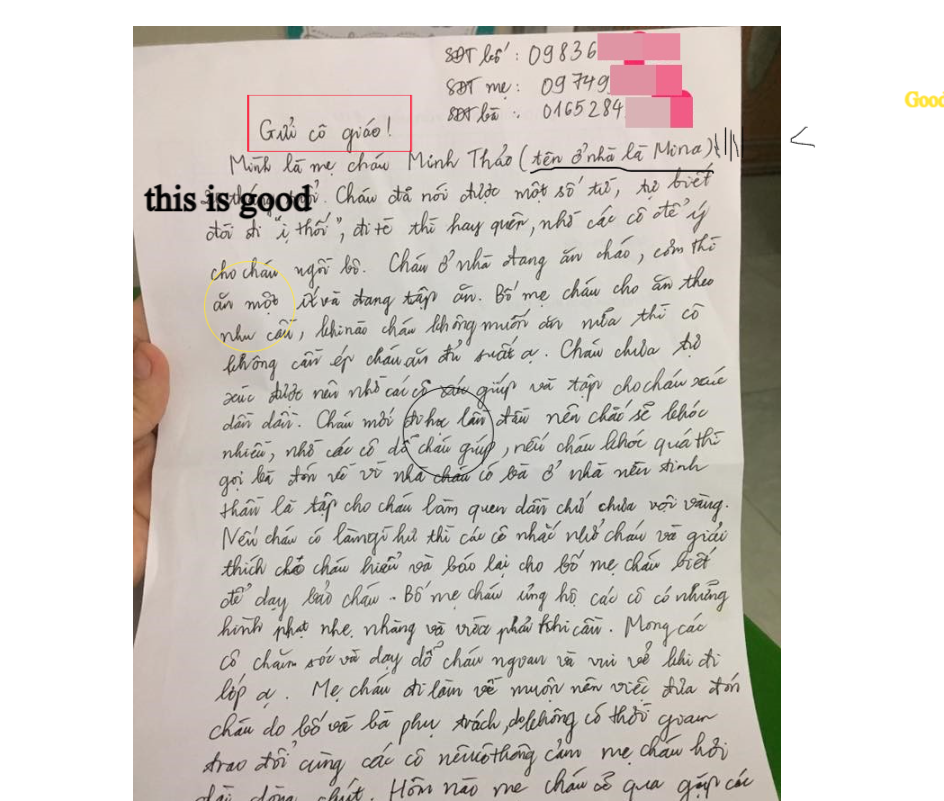 SĐT bố : 09836
SĐT mẹ : 09749
SĐT bà : 0165284
Good
Gửi cô giáo!
Mình là mẹ cháu Minh Thảo (tên ở nhà là Mina)
this is good
Cháu đã nói được một số từ, tự biết
đòi đi "ị thối", đi tè thì hay quên, nhờ các cô để ý
cho cháu ngồi bô. Cháu ở nhà đang ăn cháo, cơm thì
ăn một ít và đang tập ăn. Bố mẹ cháu cho ăn theo
nhu cầu, khi nào cháu không muốn ăn nữa thì cô
không cần ép cháu ăn đủ suất ạ. Cháu chưa tự
xúc được nên nhờ các cô xúc giúp và tập cho cháu xúc
dần dần. Cháu mới đi học lần đầu nên chắc sẽ khóc
nhiều, nhờ các cô dỗ cháu giúp, nếu cháu khóc quá thì
gọi bà đón về vì nhà cháu có bà ở nhà nên tinh
thần là tập cho cháu làm quen dần chứ chưa vội vàng.
Nếu cháu có làm gì hư thì các cô nhắc nhở cháu và giải
thích cho cháu hiểu và báo lại cho bố mẹ cháu biết
để dạy bảo cháu. Bố mẹ cháu ủng hộ các cô có những
hình phạt nhẹ nhàng và vừa phải khi cần. Mong các
cô chăm sóc và dạy dỗ cháu ngoan và vui vẻ khi đi
lớp ạ. Mẹ cháu đi làm về muộn nên việc đưa đón
cháu do bố và bà phụ trách, do không có thời gian
trao đổi cùng các cô nên cô thông cảm mẹ cháu hơi
dài dòng chút. Hôm nào mẹ cháu sẽ qua gặp các